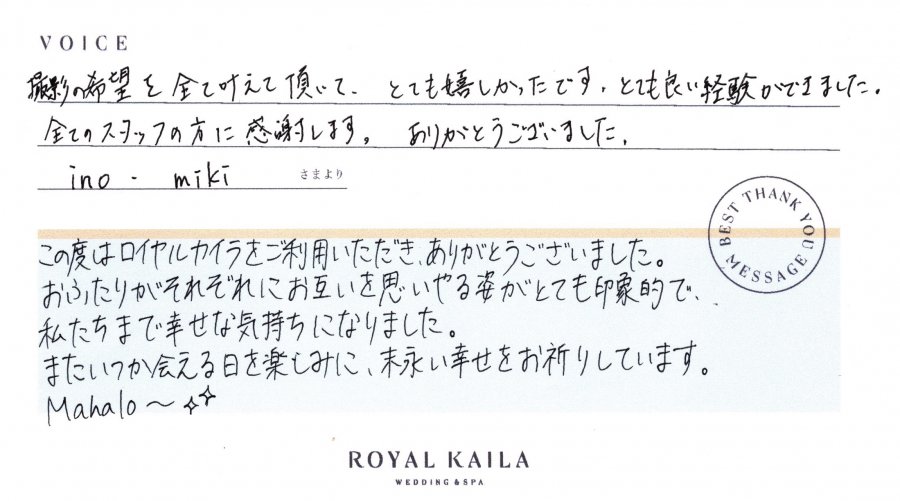 VOICE
撮影の希望を全て叶えて頂いて、とても嬉しかったです。とても良い経験ができました。
全てのスタッフの方に感謝します。 ありがとうございました。
ino・miki さまより
BEST THANK YOU MESSAGE
この度はロイヤルカイラをご利用いただき、ありがとうございました。
おふたりがそれぞれにお互いを思いやる姿がとても印象的で、
私たちまで幸せな気持ちになりました。
またいつか会える日を楽しみに、末永い幸せをお祈りしています。
Mahalo〜
ROYAL KAILA
WEDDING & SPA